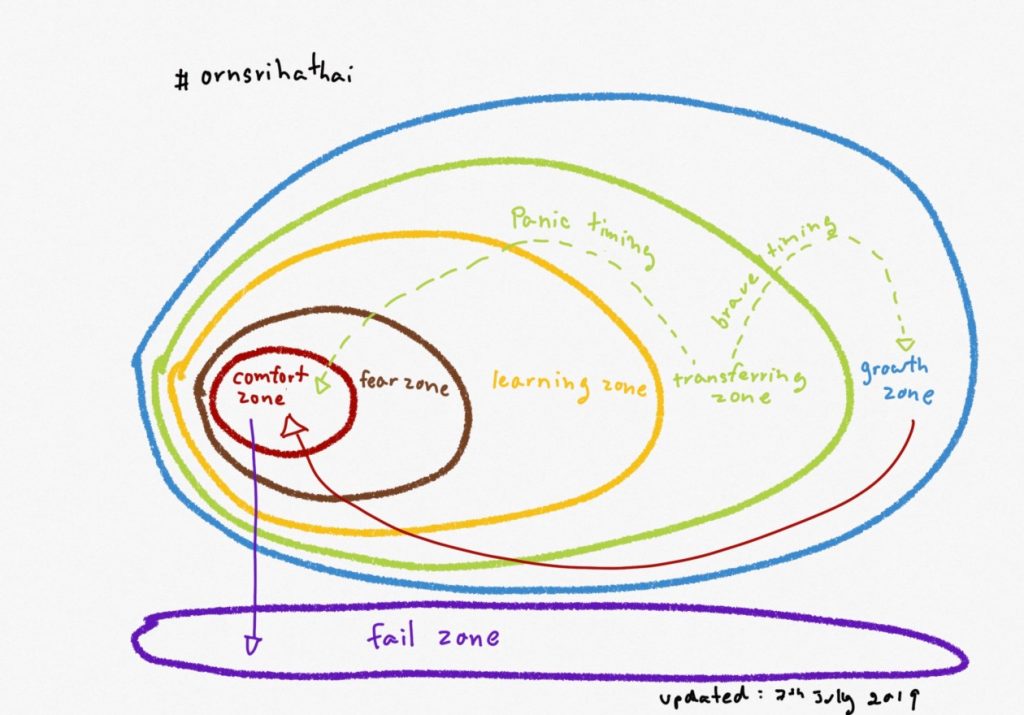 # ornsrihathai
Panic timing
brave timing
comfort
zone
fear zone
learning zone
transferring
zone
growth
zone
fail zone
updated: 7th July 2019